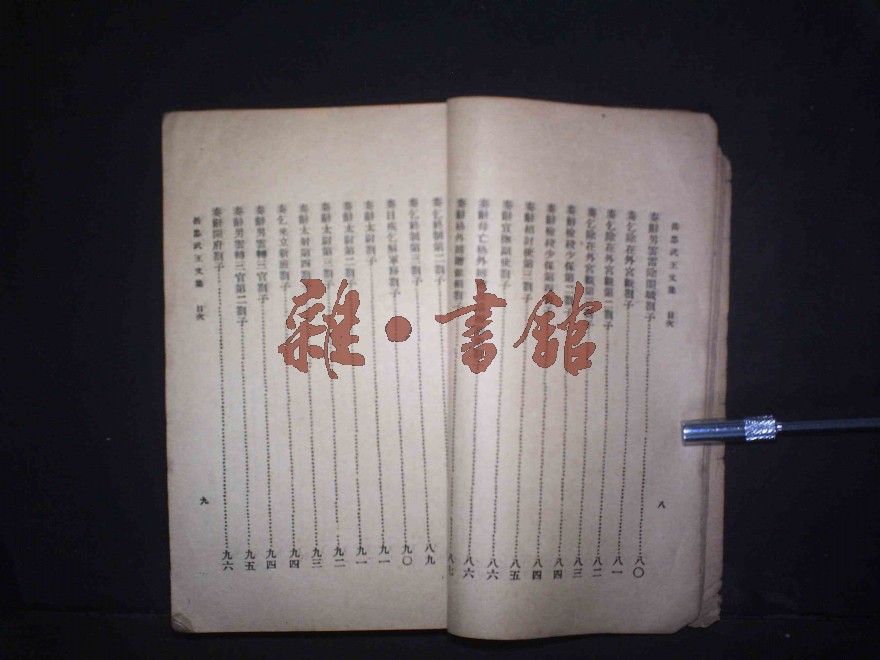 岳忠武王文集 目次
八
奏辭男雲雷除閤職劄子 八〇
奏乞除在外宮觀劄子 八一
奏乞除在外宮觀第二劄子 八二
奏乞除在外宮觀第三劄子 八三
奏辭檢校少保第二劄子 八四
奏辭檢校少保第 八四
奏辭 討使第三劄子 八五
奏辭宣撫副使劄子 八六
奏辭母亡格外 八六
奏辭格外 劄子
奏乞終制第二劄子 八九
奏乞終制第三劄子 九〇
奏目疾乞 軍務劄子 九一
奏辭太尉劄子 九一
奏辭太尉第二劄子 九二
奏辭太尉第三劄子 九三
奏辭太尉第四劄子 九四
奏乞 立 班劄子 九四
奏辭男雲轉三官劄子 九五
奏辭男雲轉三官第二劄子 九六
奏辭開府劄子
岳忠武王文集 目次
九
雜·書館